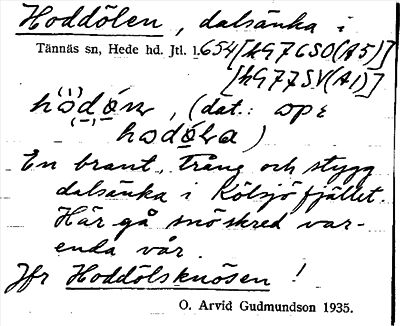 Hoddölen, dalsänka i
Tännäs sn, Hede hd. Jtl. 1.654 [hG76SO(A5)]
[hG77SV(A1)]
(dat.:
En brant, trång och stygg
dalsänka i Kölsjöfjället.
Här gå snöskred var-
enda vår.
Jfr Hoddölsknösen!
O. Arvid Gudmundson 1935.